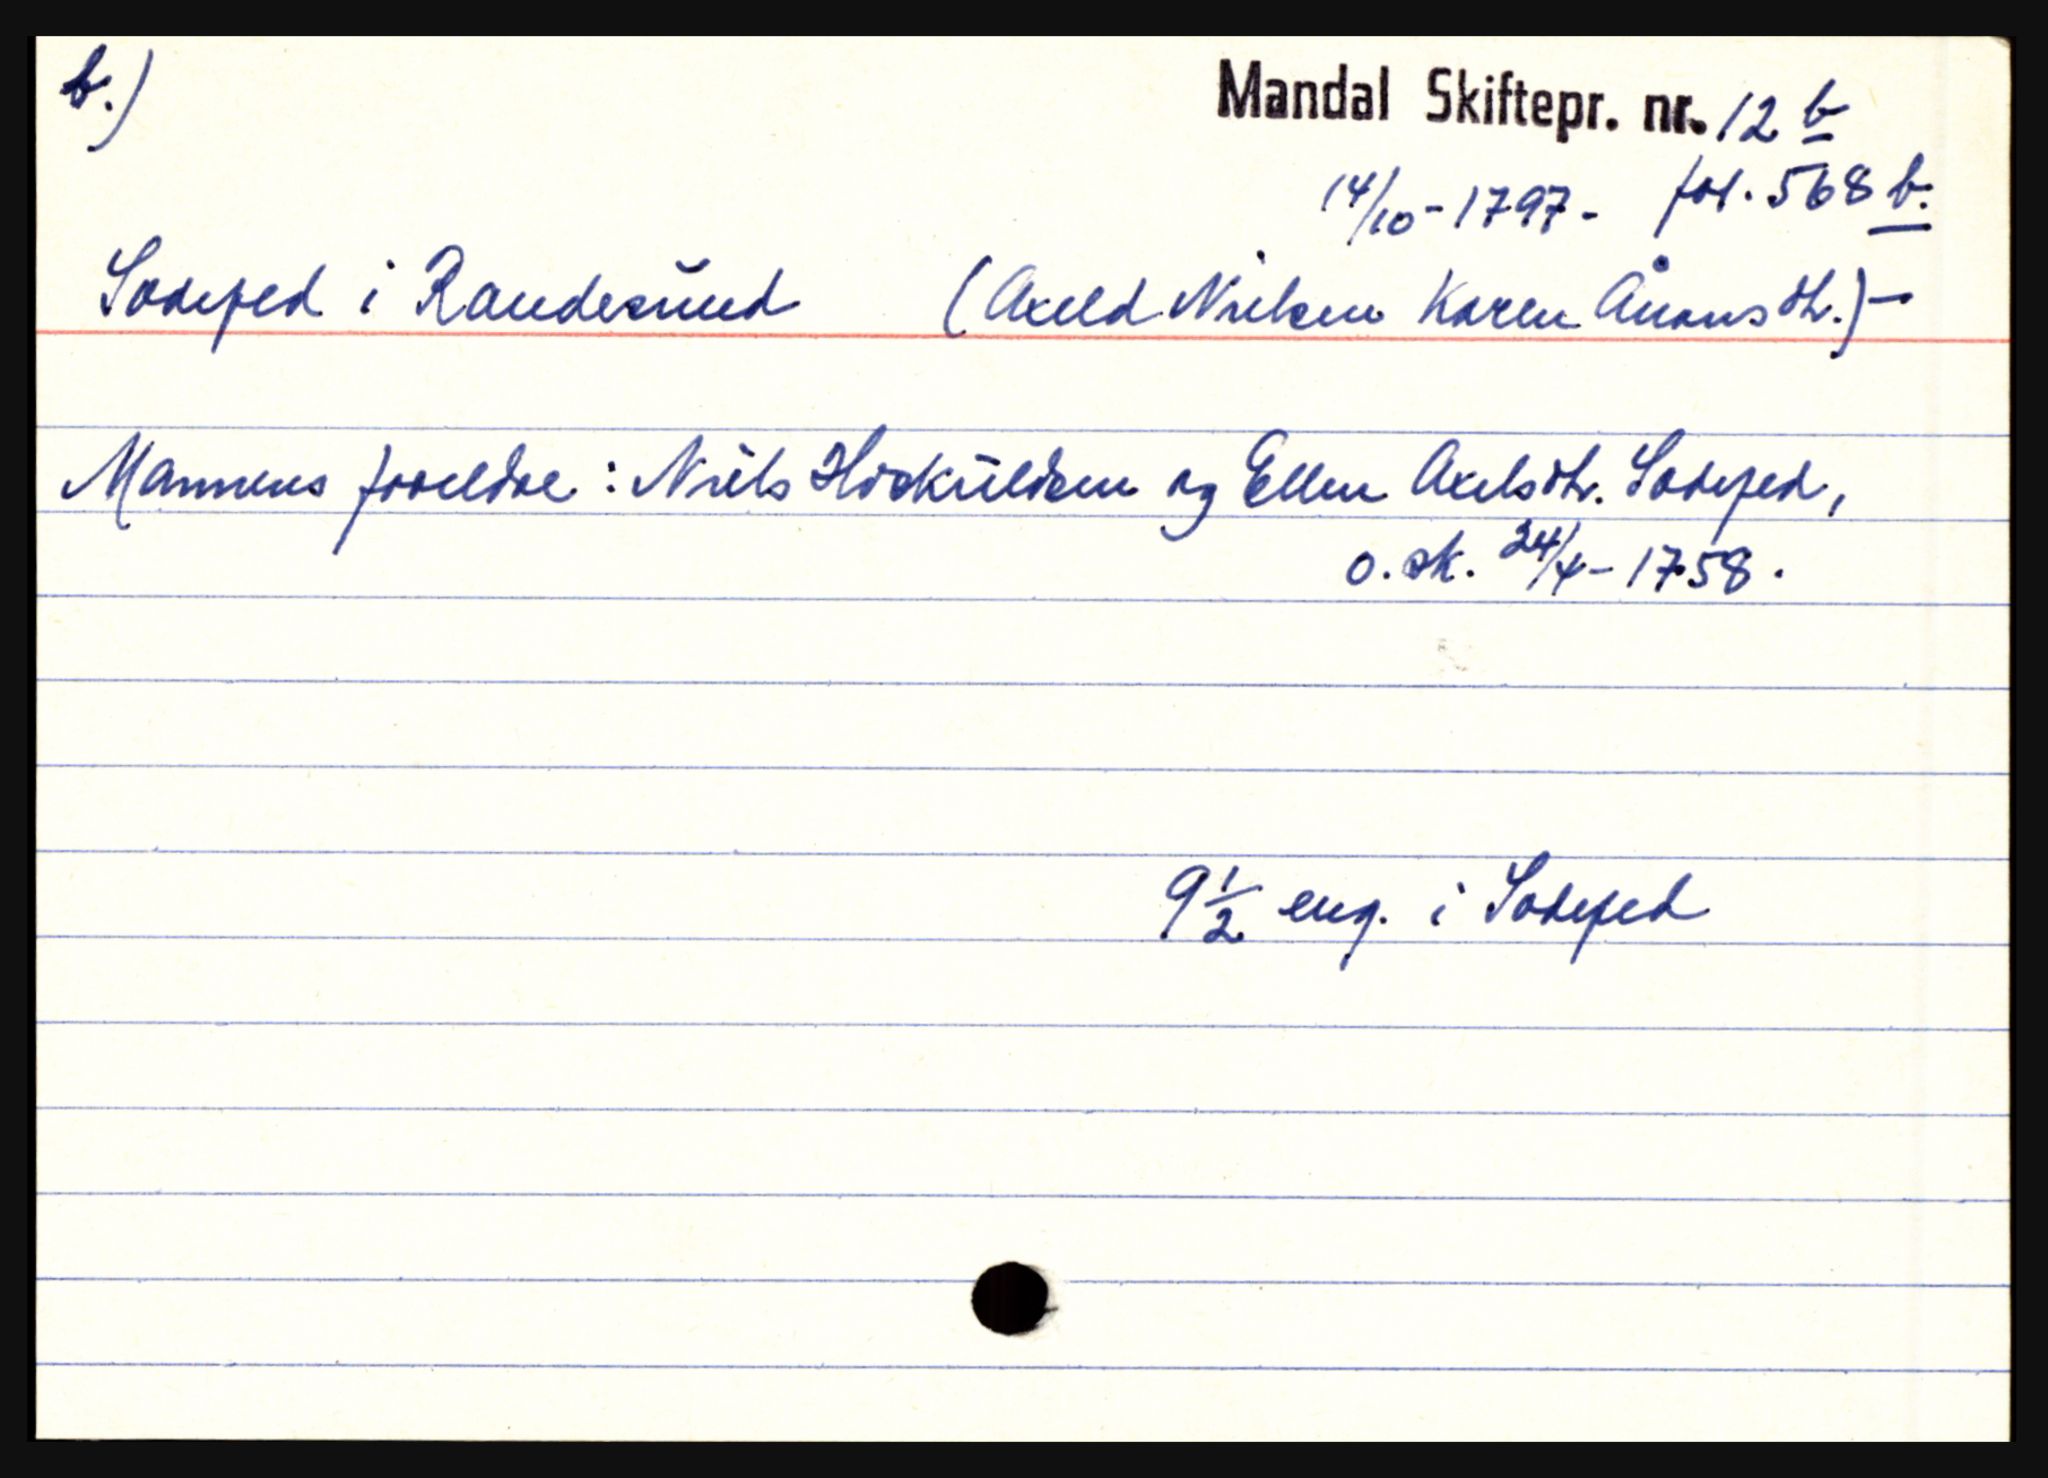 b.)
Mandal Skiftepr. nr. 12 b
14/10 - 1797 - fol. 568 b.
Sodefjed i Randesund (Axeld Nielsen Karen Ånonsdtr.) -
Mannens foreldre : Niels Hoskuldsen og Ellen Axelsdtr. Sodefjed,
o. sk. 24/4 - 1758 .
9 1/2 eng. i Sodefjed